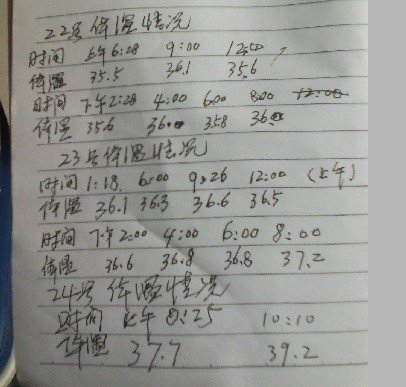 22号体温情况
时间 上午6:28 9:00 12:00
体温 35.5 36.1 35.6
时间 下午2:28 4:00 6:00 8:00 12:00
体温 35.6 36.0 35.8 36.0
23号体温情况
时间 1:18 6:00 9:26 12:00 (上午)
体温 36.1 36.3 36.6 36.5
时间 下午2:00 4:00 6:00 8:00
体温 36.6 36.8 36.8 37.2
24号 体温情况
时间 上午 8:25 10:10
体温 37.7 39.2